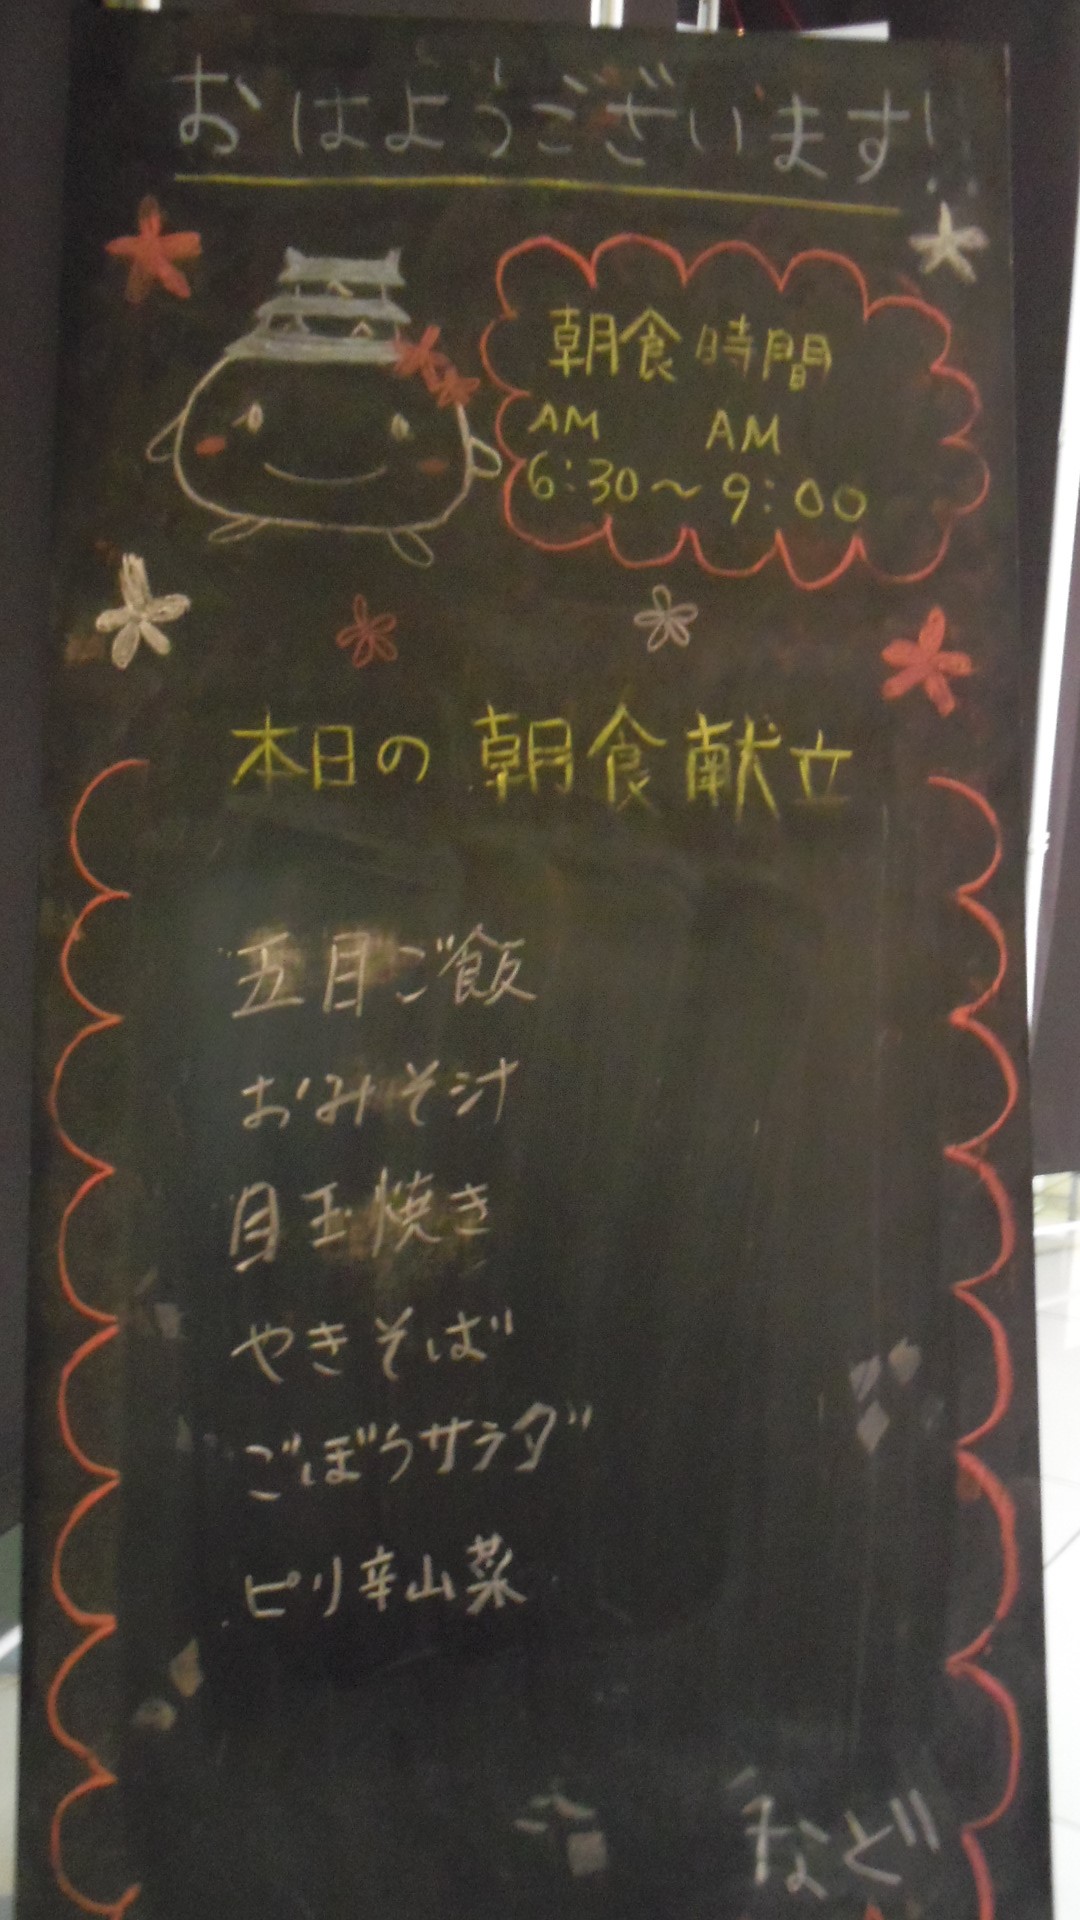 おはようございます!!
朝食時間
AM AM
6:30〜9:00
本日の朝食献立
五目ご飯
おみそ汁
目玉焼き
やきそば
ごぼうサラダ
ピリ辛山菜
など